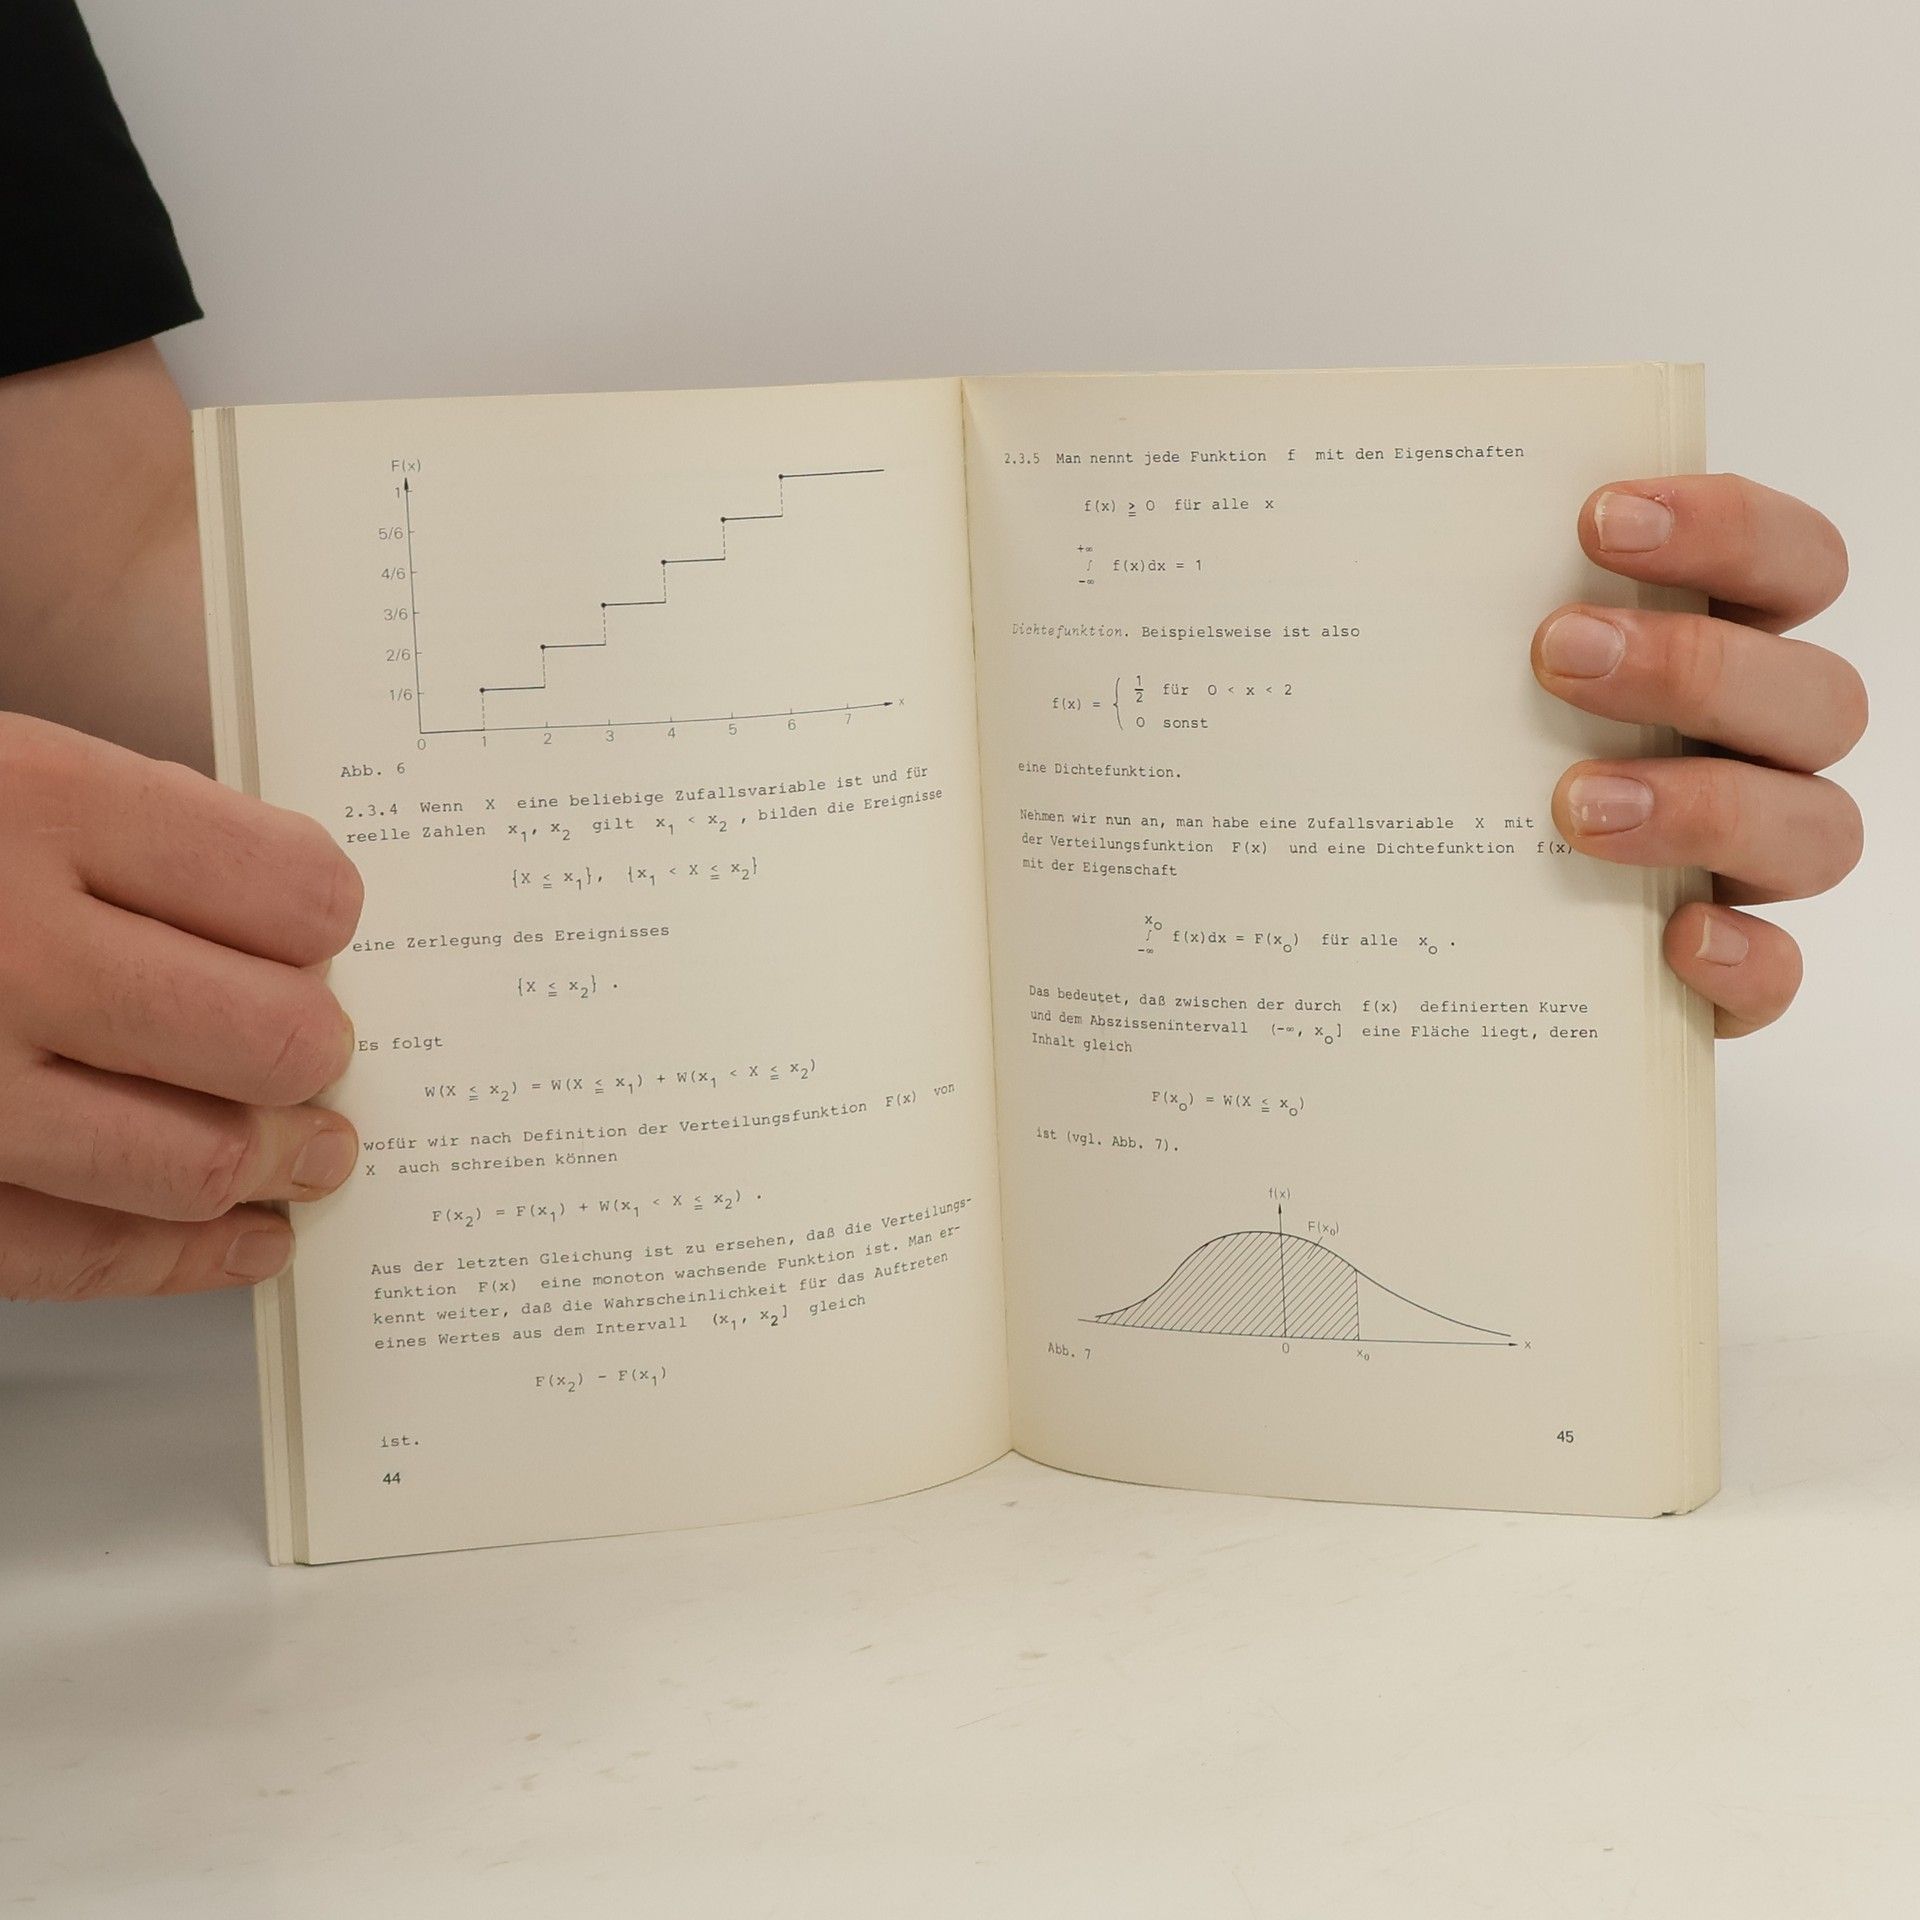 F(x)
1
5/6
4/6
3/6
2/6
1/6
0 1 2 3 4 5 6 7 x
Abb. 6
2.3.4 Wenn X eine beliebige Zufallsvariable ist und für
reelle Zahlen x₁, x₂ gilt x₁ < x₂ , bilden die Ereignisse
{X ≦ x₁}, {x₁ < X ≦ x₂}
eine Zerlegung des Ereignisses
{X ≦ x₂} .
Es folgt
W(X ≦ x₂) = W(X ≦ x₁) + W(x₁ < X ≦ x₂)
wofür wir nach Definition der Verteilungsfunktion F(x) von
X auch schreiben können
F(x₂) = F(x₁) + W(x₁ < X ≦ x₂) .
Aus der letzten Gleichung ist zu ersehen, daß die Verteilungs-
funktion F(x) eine monoton wachsende Funktion ist. Man er-
kennt weiter, daß die Wahrscheinlichkeit für das Auftreten
eines Wertes aus dem Intervall (x₁, x₂] gleich
F(x₂) - F(x₁)
ist.
44
2.3.5 Man nennt jede Funktion f mit den Eigenschaften
f(x) ≧ 0 für alle x
+∞
∫ f(x)dx = 1
-∞
Dichtefunktion. Beispielsweise ist also
f(x) = { 1/2 für 0 < x < 2
0 sonst
eine Dichtefunktion.
Nehmen wir nun an, man habe eine Zufallsvariable X mit
der Verteilungsfunktion F(x) und eine Dichtefunktion f(x)
mit der Eigenschaft
x₀
∫ f(x)dx = F(x₀) für alle x₀ .
-∞
Das bedeutet, daß zwischen der durch f(x) definierten Kurve
und dem Abszissenintervall (-∞, x₀] eine Fläche liegt, deren
Inhalt gleich
F(x₀) = W(X ≦ x₀)
ist (vgl. Abb. 7).
f(x)
F(x₀)
0 x₀ x
Abb. 7
45